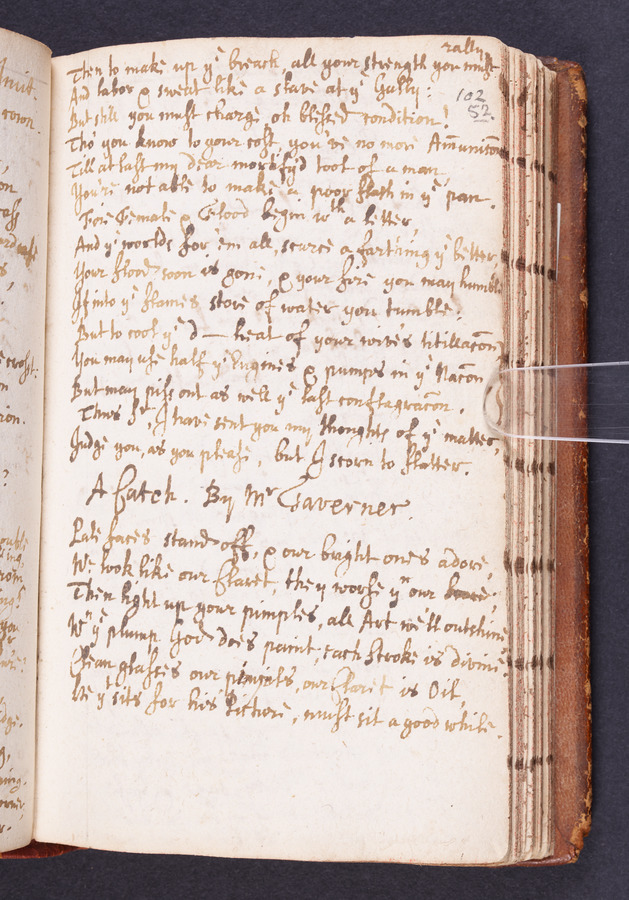 rally
Then to make up yᵉ breach all your strength you must
And labor & sweat like a slave at yᵉ Gally:
102
52
But still you must charge, oh blessed condition!
Tho' you know to your cost, you've no more Amunicon
Till at last my dear mortify'd toot of a man
You're not able to make a poor flash in yᵉ pan.
Fire Female & Flood begin wᵗʰ a letter,
And yᵉ world's for 'em all, scarce a farthing yᵉ better
Your flood soon is gone, & your fire you may humble
If into yᵉ flames store of water you tumble.
But to cool yᵉ d— heat of your wive's titillacon
You may use half yᵉ Engines & pumps in yᵉ Nacon
But may piss out as well yᵉ last conflagracon.
Thus Sʳ, I have sent you my thoughts of yᵉ matter,
Judge you, as you please, but I scorn to flatter.
A Catch. By Mʳ Taverner.
Pale faces stand off, & our bright ones adore,
We look like our Claret, they worse yⁿ our
Then light up your pimples, all Art we'll outshine
Wⁿ yᵉ plump God does paint, each stroke is divine.
Clean glasses our pencils, our Claret is Oil,
He yᵗ sits for his Picture, must sit a good while.